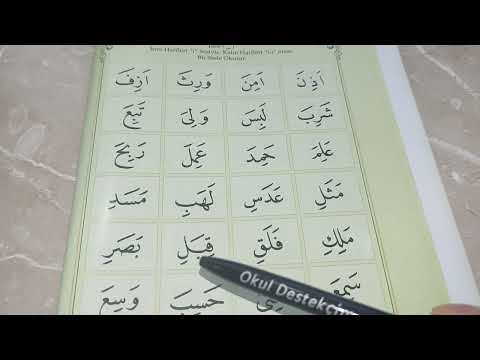 İnce Harfleri "i" Sesiyle, Kalın Harfleri "ı" 
Bu Şekle Okunur.
اَذِنَ اَمِنَ وَرِثَ اَزِفَ
شَرِبَ لَبِسَ وَلِىَ تَبِعَ
عَلِمَ حَمِدَ عَمِلَ رَبِحَ
مَثَلِ عَدَسِ لَهَبِ مَسَدِ
مَلِكِ فَلَقِ قِبَلِ بَصَرِ
سَمِعَ حَسِبَ وَسِعَ
Okul Destekçim